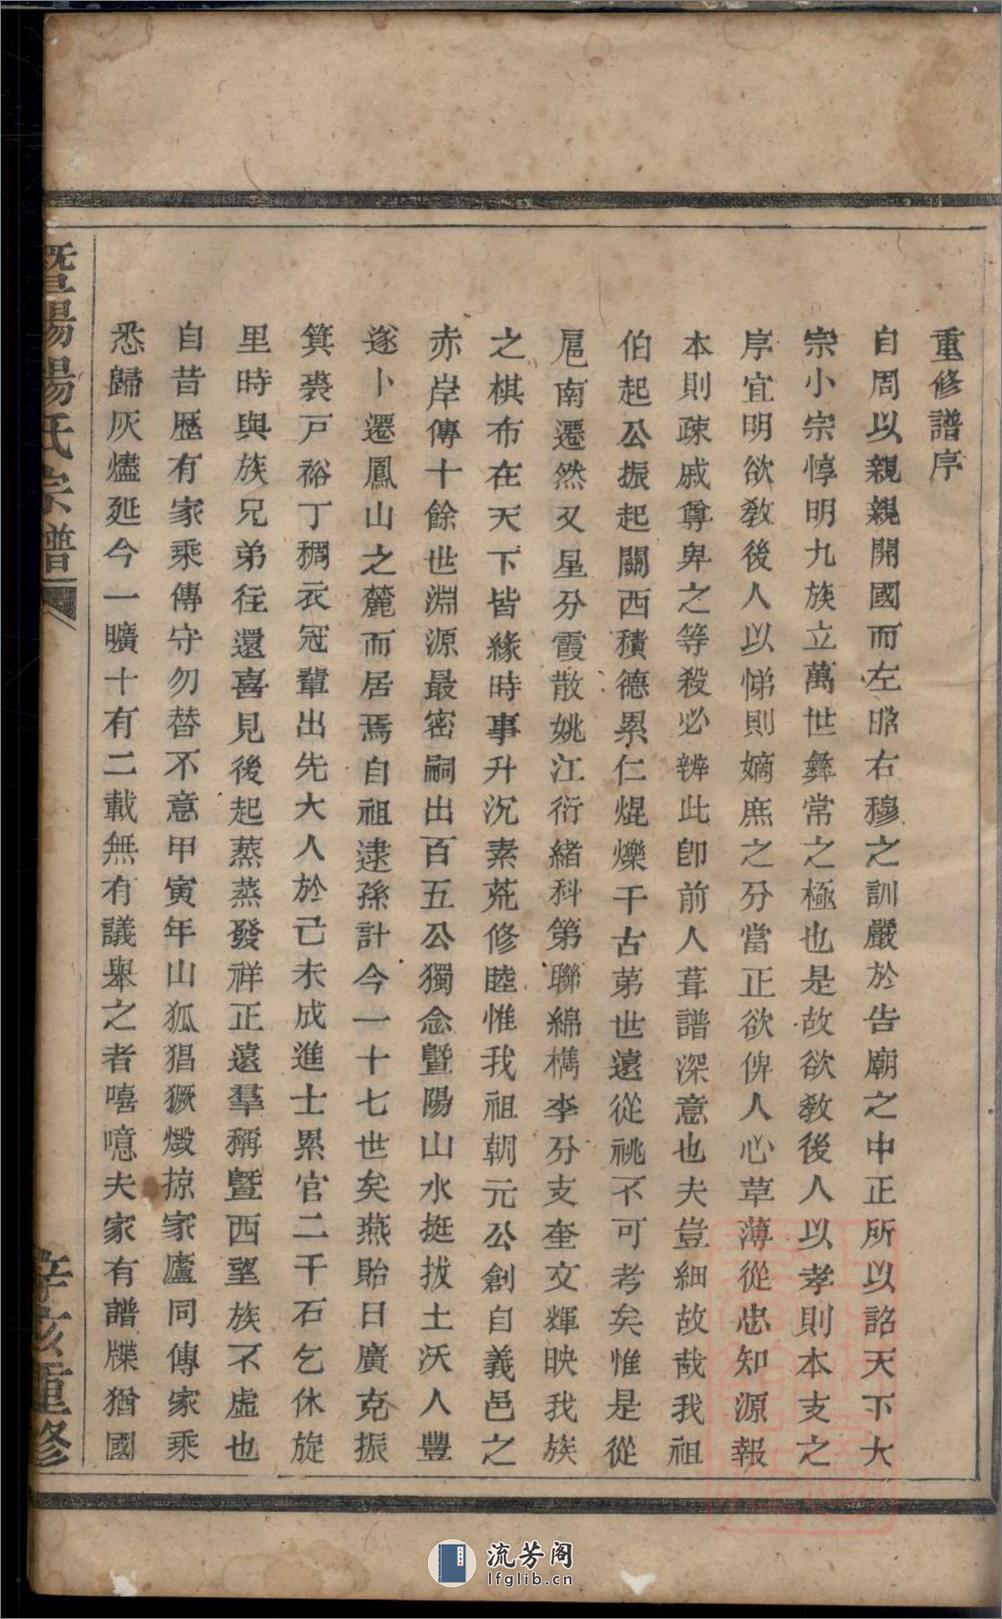 重修譜序
自周以親親開國而左昭右穆之訓嚴於告廟之中正所以詔天下大
宗小宗惇明九族立萬世彝常之極也是故欲教後人以孝則本支之
序宜明欲教後人以悌則嫡庶之分當正欲俾人心草薄從忠知源報
本則疎戚尊卑之等殺必辨此卽前人葺譜深意也夫豈細故哉我祖
伯起公振起關西積德累仁焜爍千古苐世遠從祧不可考矣惟是從
扈南遷然又星分霞散姚江衍緒科第聯綿檇李分支奎文輝映我族
之棋布在天下皆緣時事升沉素荒修睦惟我祖朝元公創自義邑之
赤岸傳十餘世淵源最密嗣出百五公獨念曁陽山水挺拔土沃人豐
遂卜遷鳳山之麓而居焉自祖逮孫計今一十七世矣燕貽日廣克振
箕裘戸裕丁稠衣冠輩出先大人於己未成進士累官二千石乞休旋
里時與族兄弟往還喜見後起蒸蒸發祥正遠羣稱曁西望族不虛也
自昔歷有家乘傳守勿替不意甲寅年山狐猖獗燬掠家廬同傳家乘
悉歸灰燼延今一曠十有二載無有議舉之者嘻噫夫家有譜牒猶國
暨陽楊氏宗譜
辛亥重修
流芳阁
lfglib.cn